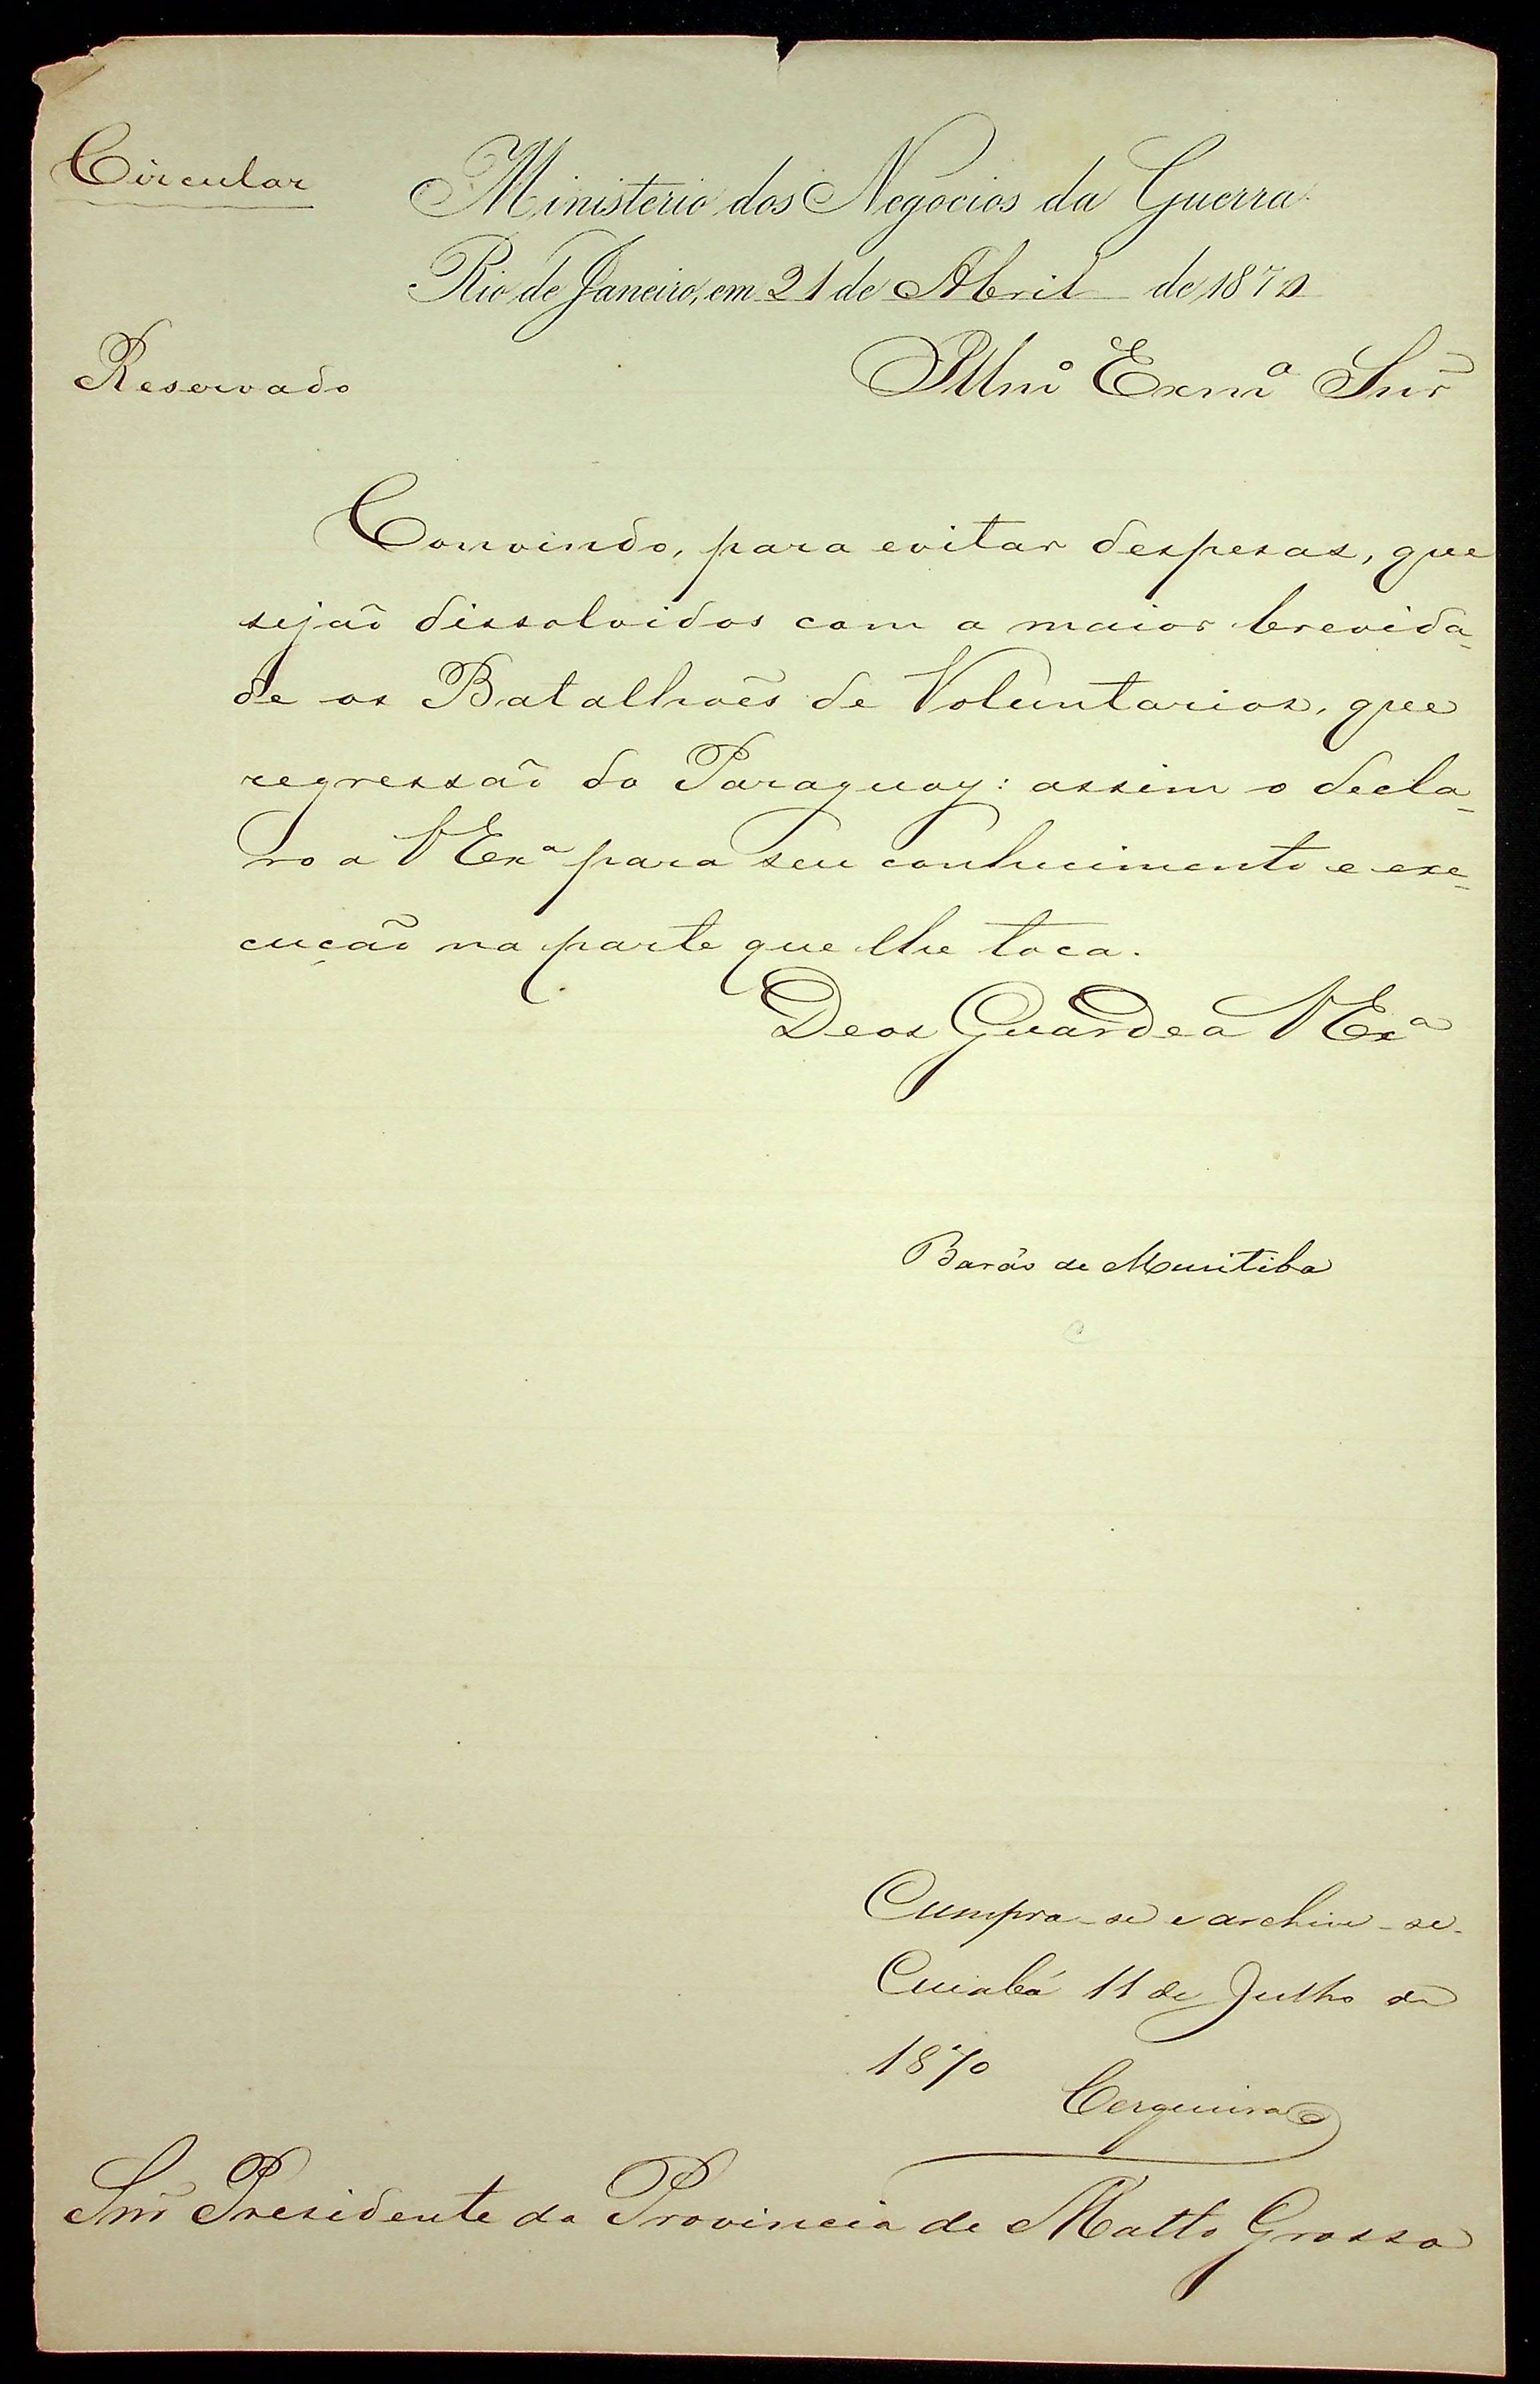 Circular
Ministerio dos Negocios da Guerra.
Rio de Janeiro, em 21 de Abril de 1870
Reservado
Illmº Exmº Snr
Convindo, para evitar despesas, que
sejaõ dissolvidos com a maior brevida_
de os Batalhoẽs de Voluntarios, que
regressaõ do Paraguay: assim o decla_
ro a V Exª para seu conhecimento e exe_
cuçaõ na parte que lhe toca.
Deos Guarde a V Exª
Barão de Muritiba
Cumpra-se e archive-se.
Cuiabá 11 de Julho de
1870
Cerqueira
Snr Presidente da Provincia de Matto Grosso